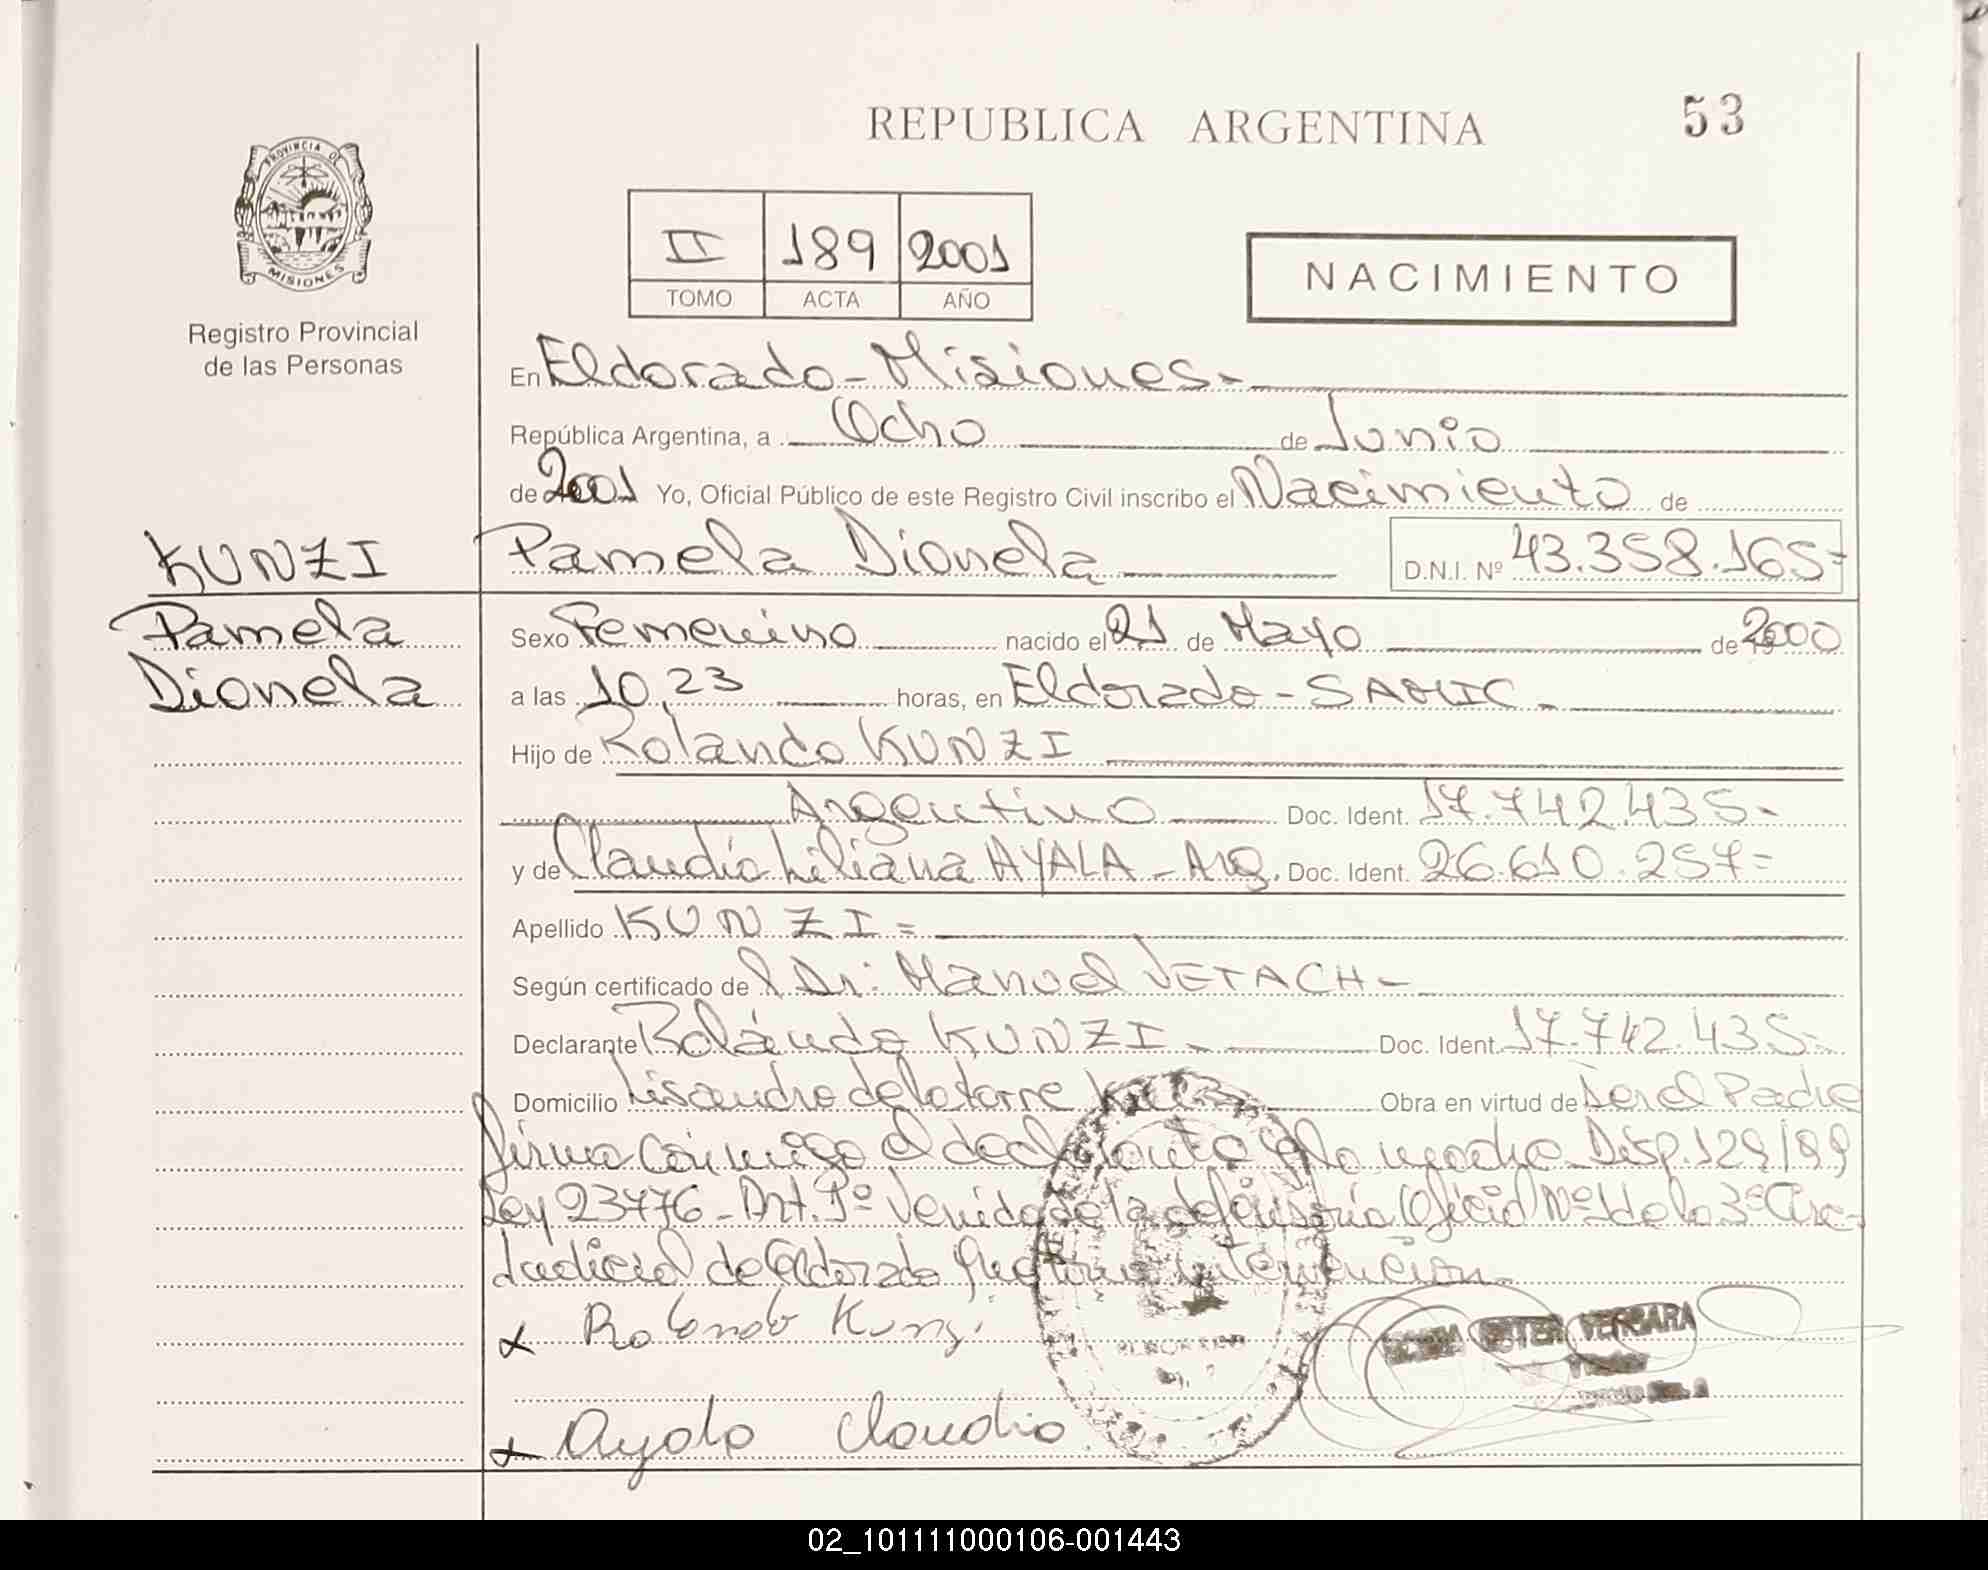 REPUBLICA ARGENTINA
53
PROVINCIA DE
MISIONES
Registro Provincial
de las Personas
II 189 2001
TOMO ACTA AÑO
NACIMIENTO
En Eldorado - Misiones -
República Argentina, a Ocho de Junio
de 2001 Yo, Oficial Público de este Registro Civil inscribo el Nacimiento de
KUNZI
Pamela Dionela D.N.I. Nº 43.358.165=
Pamela
Dionela
Sexo Femenino nacido el 21 de Mayo de 2000
a las 10,23 horas, en Eldorado - SAMIC -
Hijo de Rolando KUNZI
Argentino Doc. Ident. 17.742.435-
y de Claudia Liliana AYALA - Arg. Doc. Ident. 26.610.257=
Apellido KUNZI =
Según certificado del Dr: Manuel VETACH -
Declarante Rolando KUNZI - Doc. Ident. 17.742.435-
Domicilio Lisandro de la torre Obra en virtud de Ser el Padre
firma conmigo el declarante y la madre - Disp. 129/99
Ley 23776 - Art. 1º Venida de la defensoría Oficial Nº 1 de la 3º Circ-
Judicial de Eldorado que intervención
x Rolando Kunzi
VERGARA
x Ayala Claudia
02_101111000106-001443